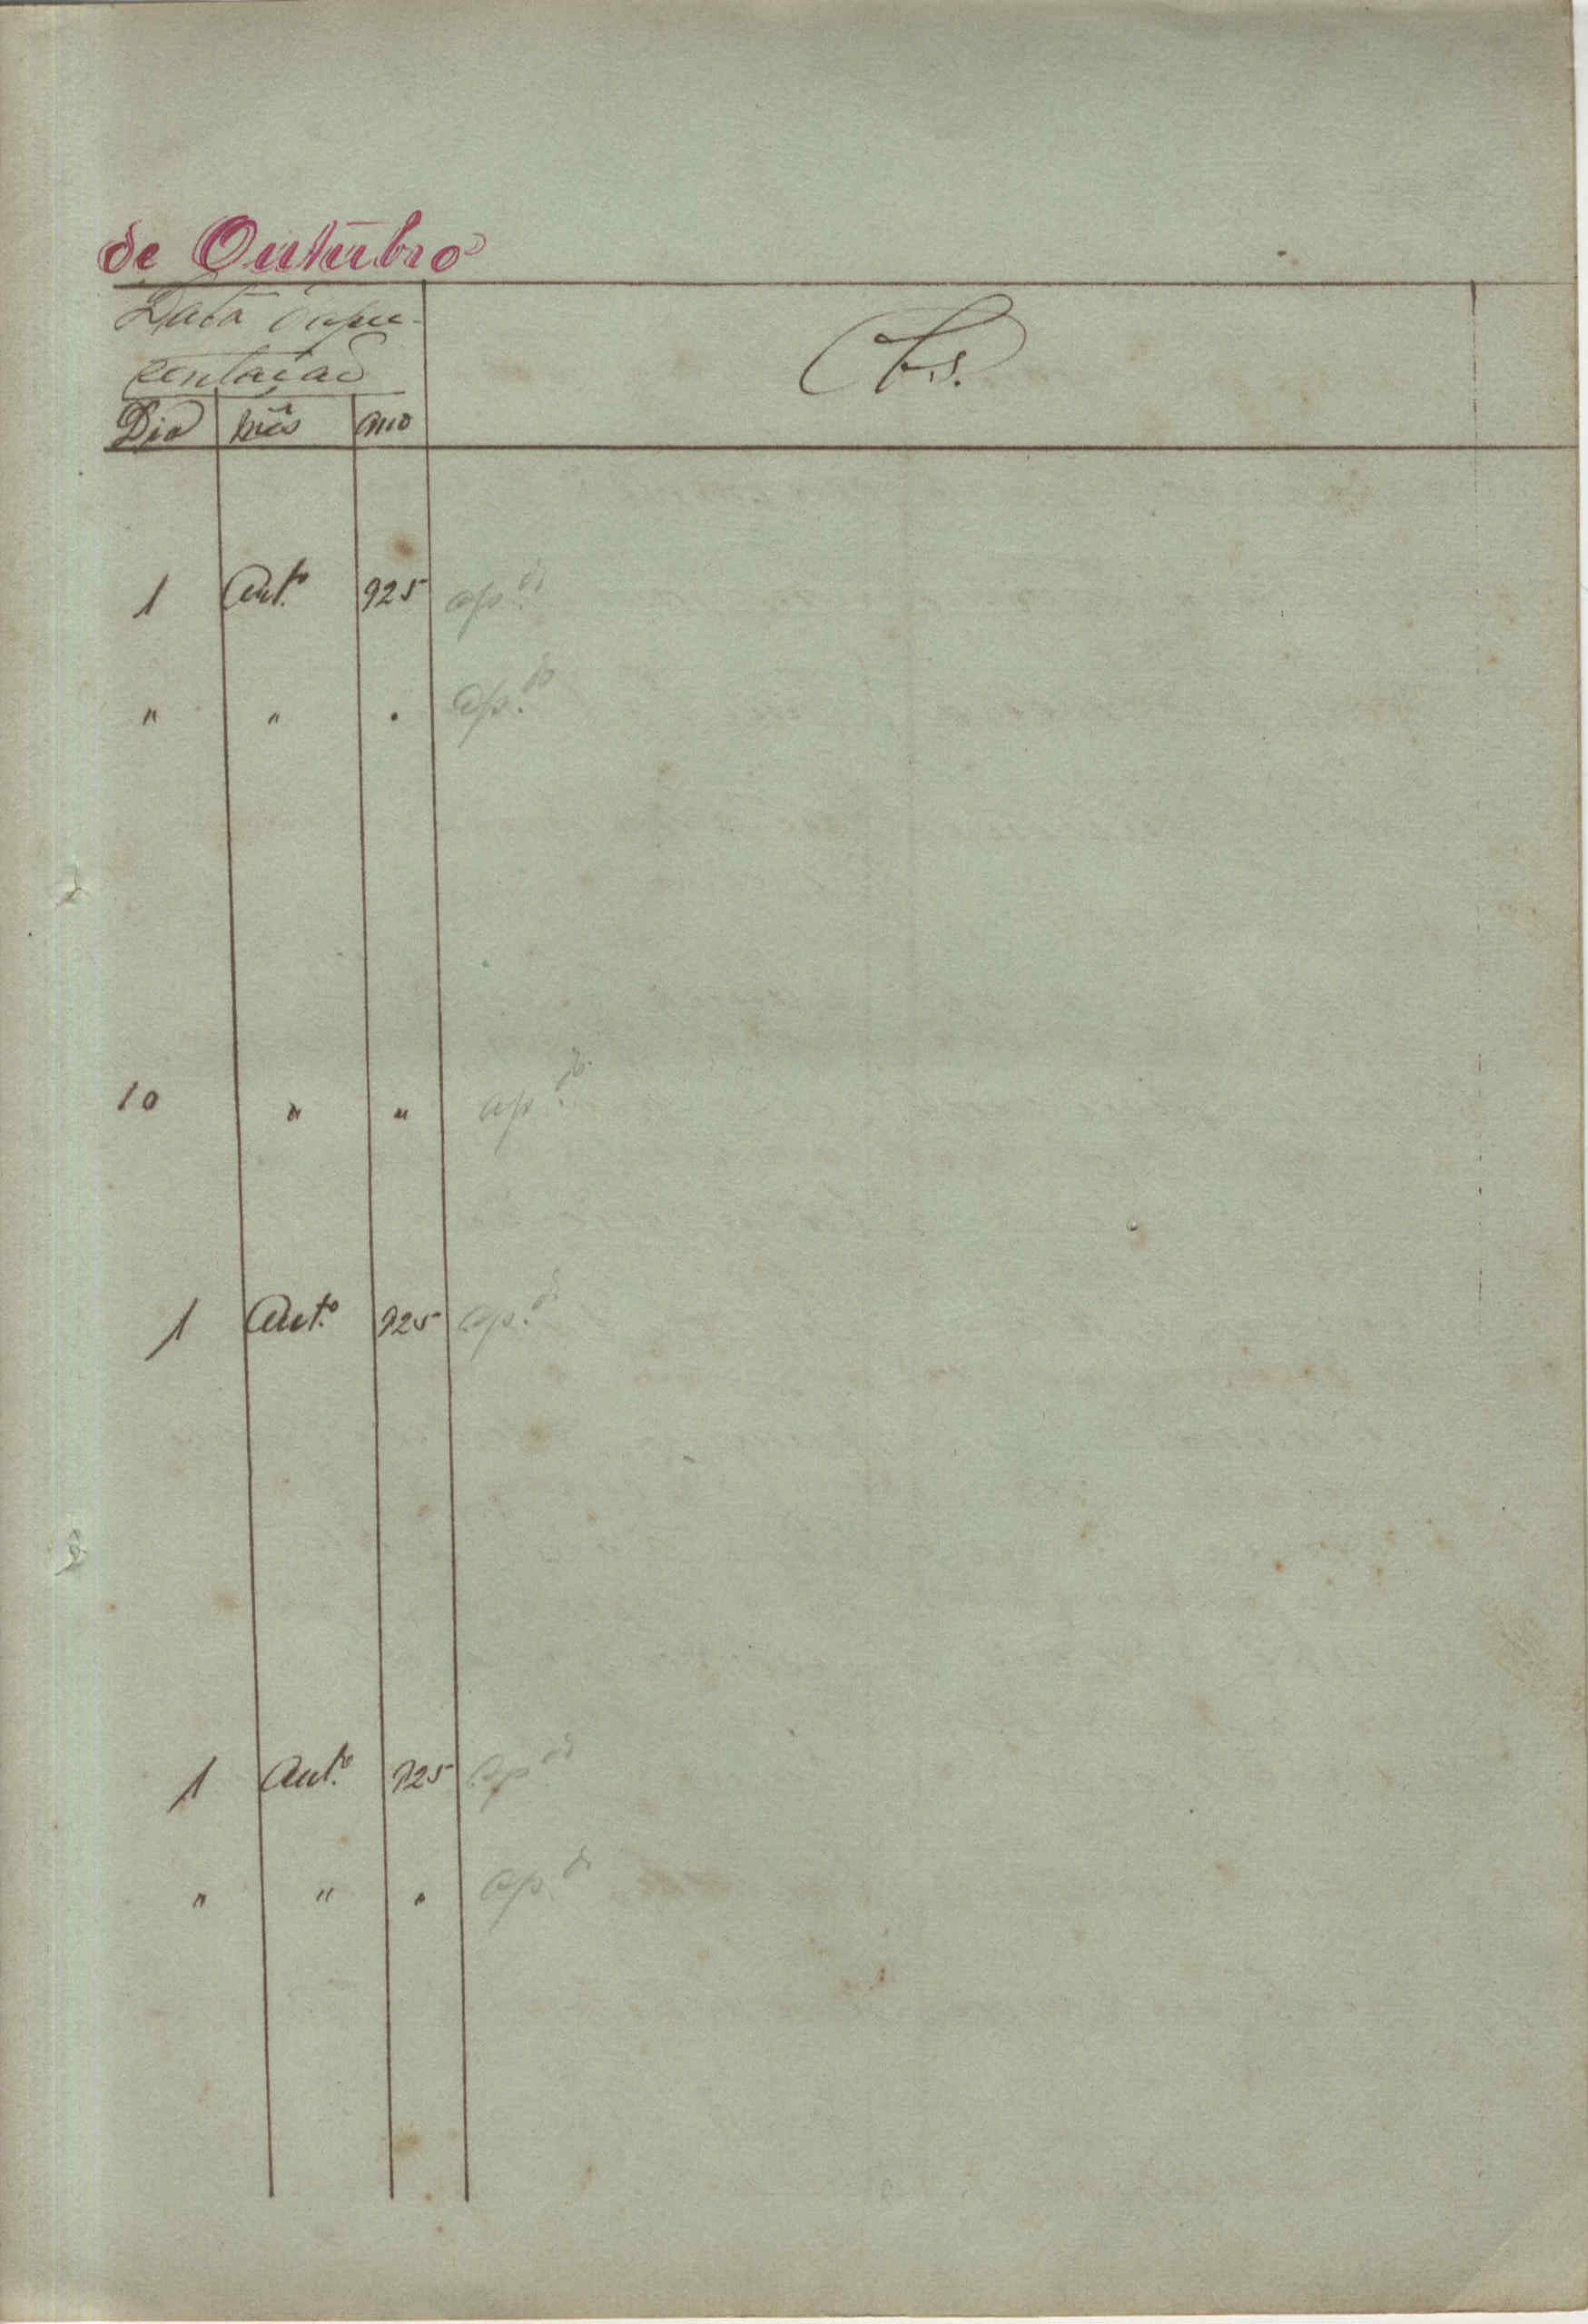 de Outubro
Data
sentação
Obs.
Dia mês ano
1 Out.º 925 ap.do
" " " ap.do
10 " " ap.do
1 Out.º 925 ap.do
1 Out.º 925 ap.do
" " " ap.do